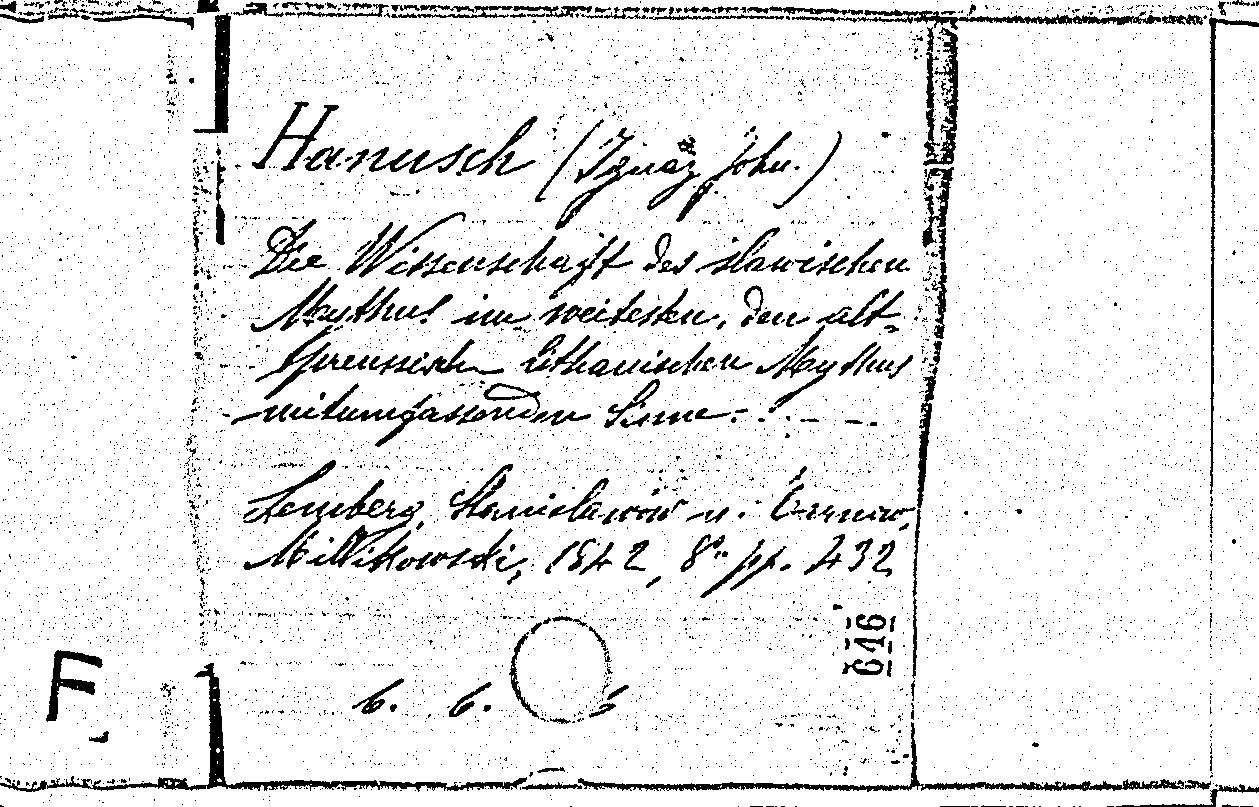 Hanusch (Ignaz John.)
Die Wissenschaft des slawischen
Mythus im weitesten, den alt-
preussisch-lithauischen Mythus
mitumfassenden Sinne. . . - - .
Lemberg, Stanislawów u. Tarnow,
Millikowski, 1842, 8° pp. 432
646
6. 6. 6
F